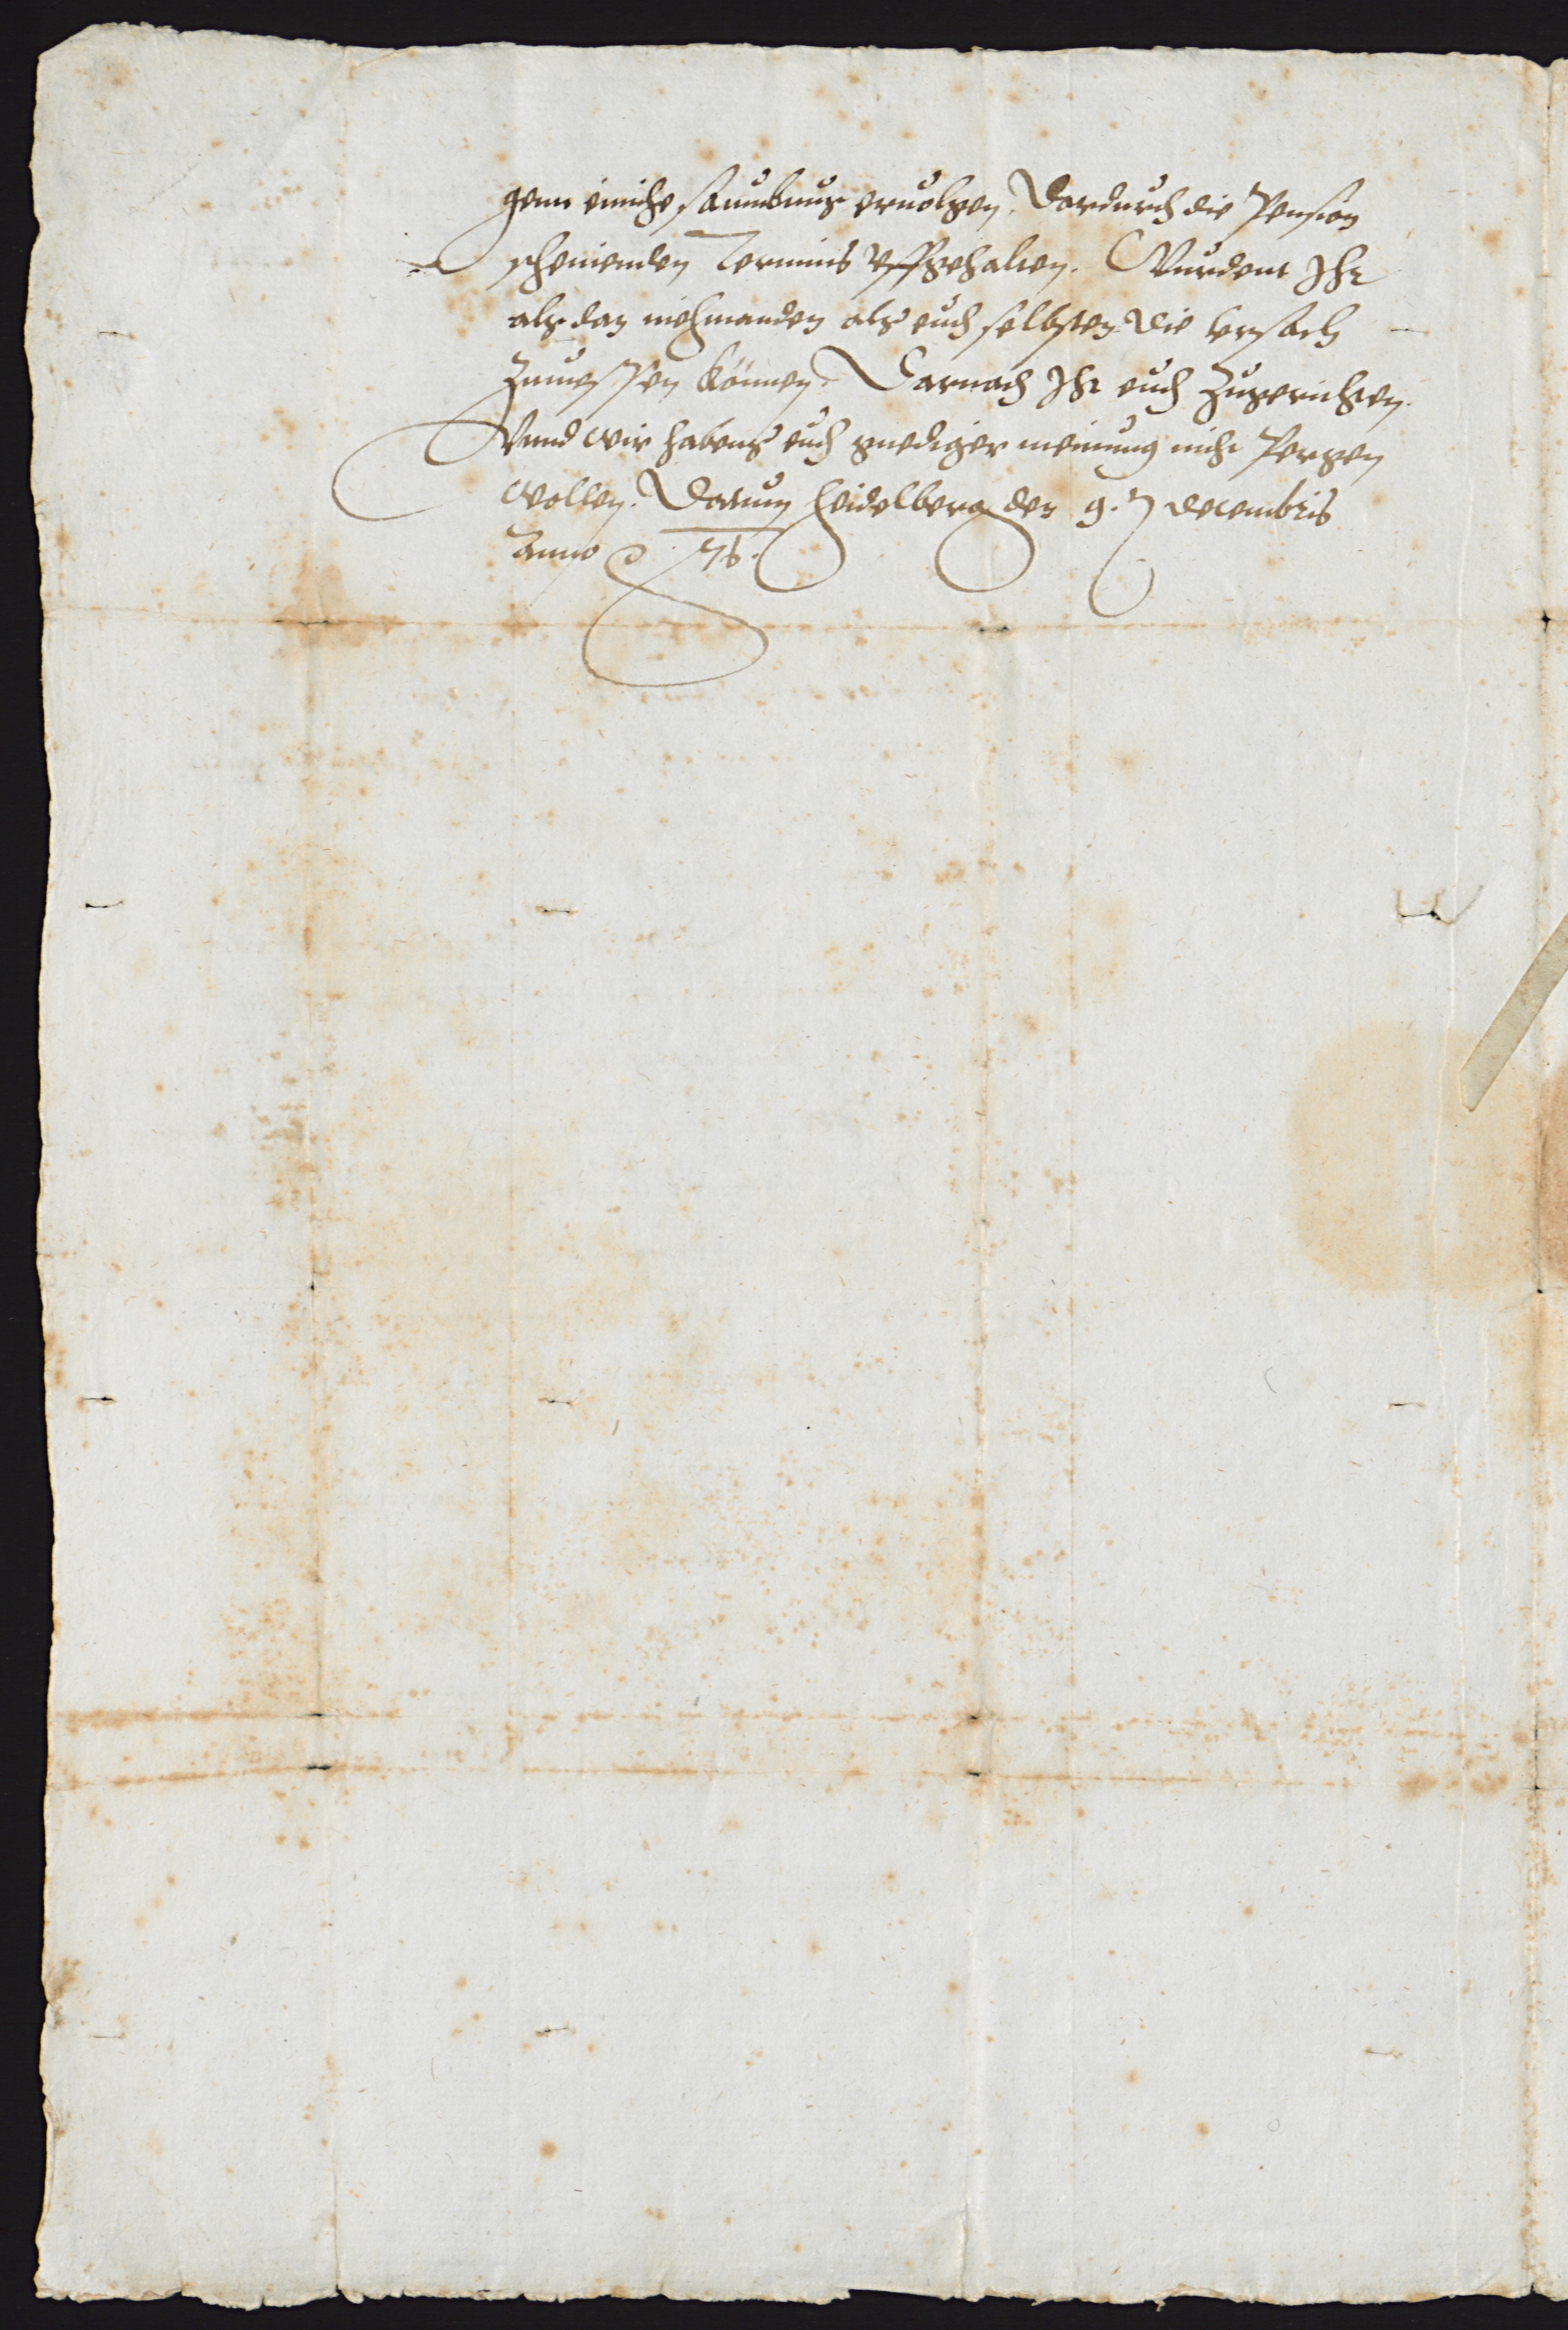 genn einiche saumbnus ervolgen, Dardurch die Pension
scheinenden Terminis uffgehalten. Wurdent Ihr
als dan niehmanden als euch selbsten die Ursach
Zumessen können. Darnach Ihr euch Zugerichten.
Unnd wir habens euch gnediger meinung nicht Pergen
wollen. Datum Heidelberg den 9. Decembris
Anno 76.